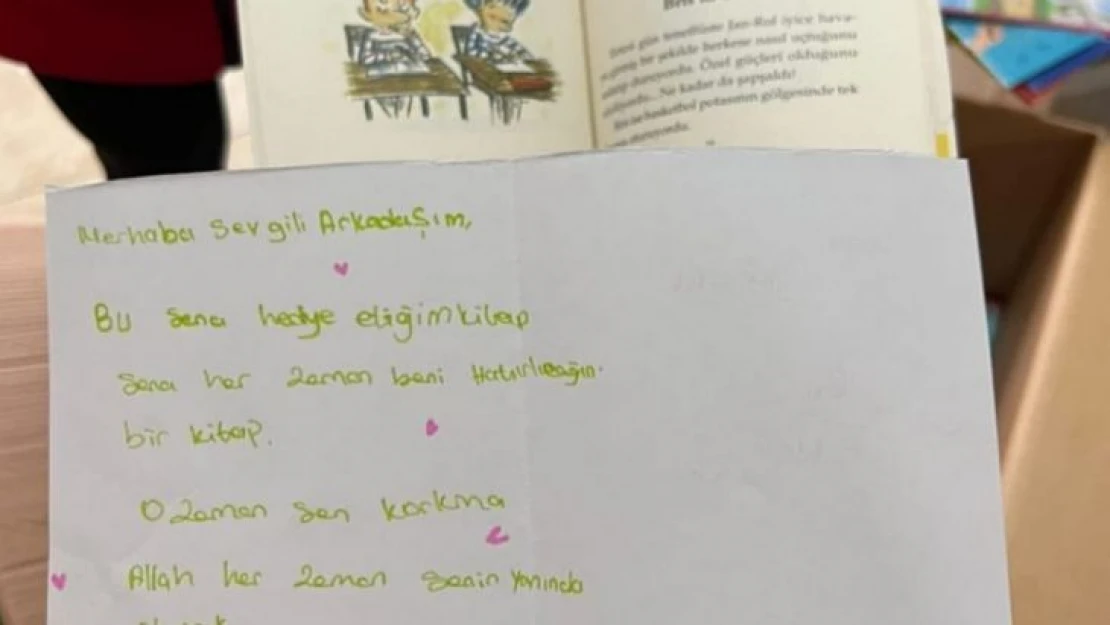 Ben
gün teneffüste Jan-Rol iyice hava-
bir şekilde herkese nasıl uçtuğunu
duruyordu. Özel güçleri olduğunu
Ne kadar da şapşaldı!
basketbol potasının gölgesinde tek
Merhaba Sevgili Arkadaşım,
Bu sana hediye eliğim kitap
Sana her zaman beni Hatırlıcağın.
bir kitap.
O zaman sen korkma
Allah her zaman senin yanında